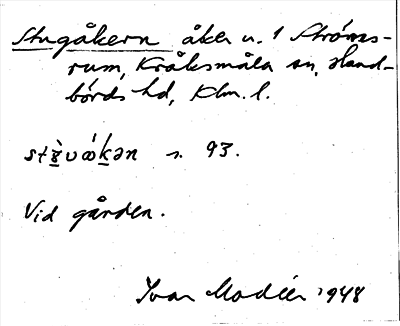 Stugåkern åker u. 1 Ströms-
rum, Kråksmåla sn, Hand-
börds hd, Klm. l.
s. 93.
Vid gården.
Ivar Modéer 1948